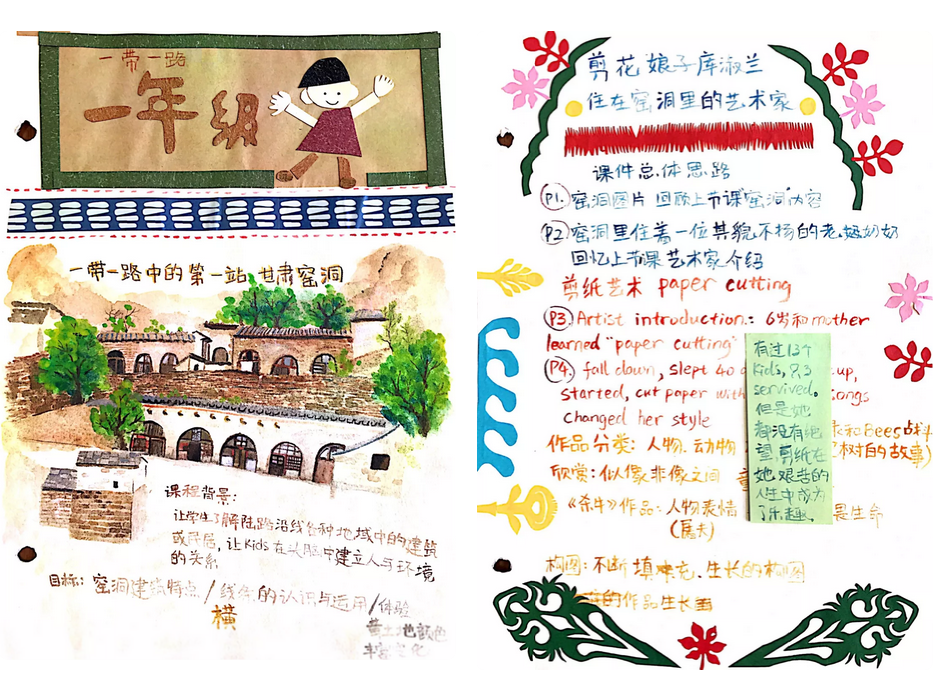 一带一路
一年级
一带一路中的第一站,甘肃窑洞
课程背景:
让学生了解陆路沿线各种地域中的建筑
或民居,让kids在头脑中建立人与环境
的关系
目标: 窑洞建筑特点/线条的认识与运用/体验
横
黄土地颜色
丰富变化
剪花娘子库淑兰
住在窑洞里的艺术家
课件总体思路
P1. 窑洞图片 回顾上节课"窑洞"内容
P2 窑洞里住着一位其貌不扬的老妈奶奶
回忆上节课艺术家介绍
剪纸艺术 paper cutting
P3. Artist introduction: 6岁和mother
learned "paper cutting"
P4. fall down, slept 40 up,
started, cut paper with songs
changed her style
作品分类: 人物. 动物 和Bees战斗
树的故事)
欣赏: 似像非像之间
《杀牛》作品: 人物表情 生命
构图: 不断填补充、生长的构图
的作品生长画
有过13个
kids, 只3
servived。
但是她
都没有绝
望 剪纸在
她艰苦的
人生中成为
了乐趣.